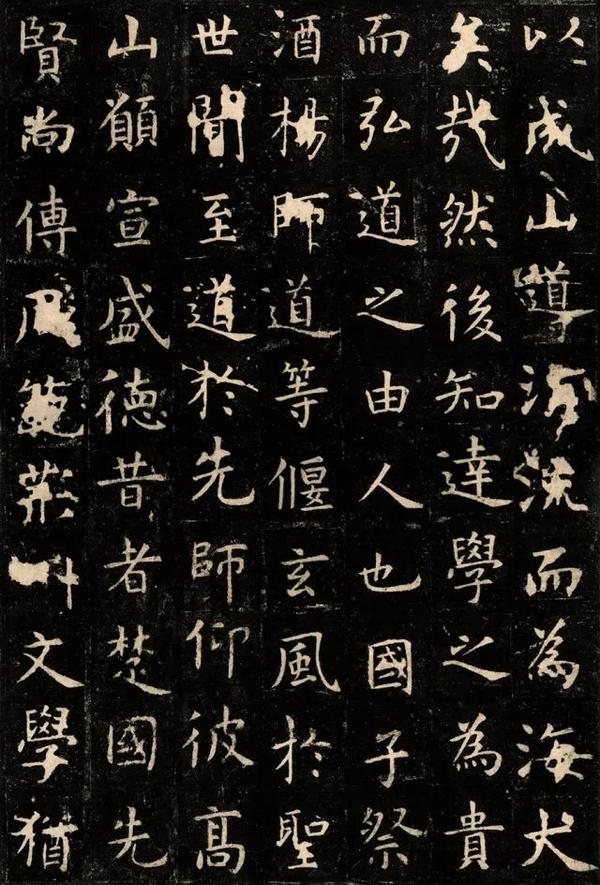 以成山導流而為海大
矣哉然後知達學之為貴
而弘道之由人也國子祭
酒楊師道等偃玄風於聖
世聞至道於先師仰彼高
山願宣盛德昔者楚國先
賢尚傳風範荊州文學猶